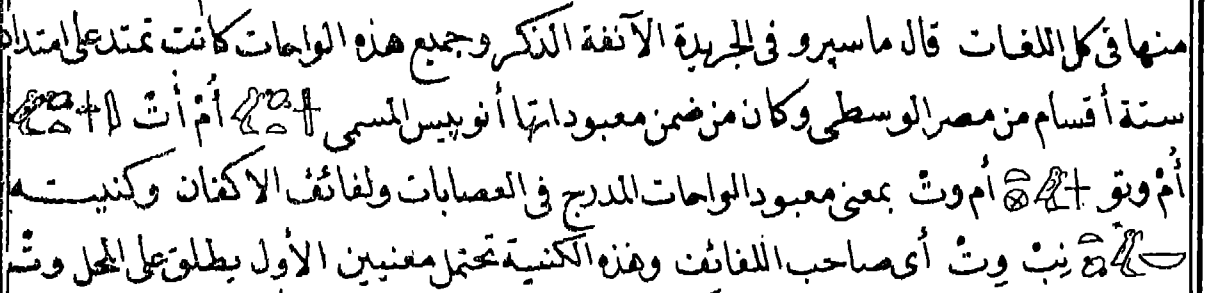 منها فى كل اللغات قال ماسپرو فى الجريدة الآنفة الذكر وجميع هذه الواحات كانت تمتد على امتداد
ستة أقسام من مصر الوسطى وكان من ضمن معبوداتها أنوبيس المسمى أُمْ أُتْ
أُمْ ويتو أم وتْ بمعنى معبود الواحات المدرج فى العصابات ولفائف الاكفان وكنيتـــه
نِبْ وِتْ أى صاحب اللفائف وهذه الكنية تحتمل معنيين الأول يطلق على المحل وتْ